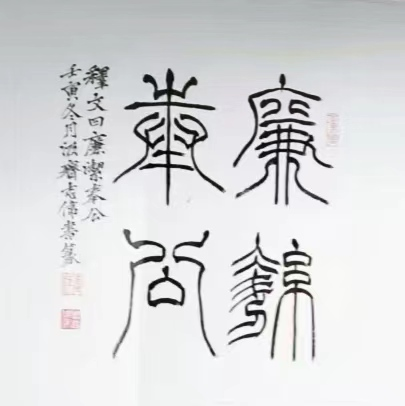 廉潔
奉公
釋文曰廉潔奉公
壬寅冬月齋志偉書篆